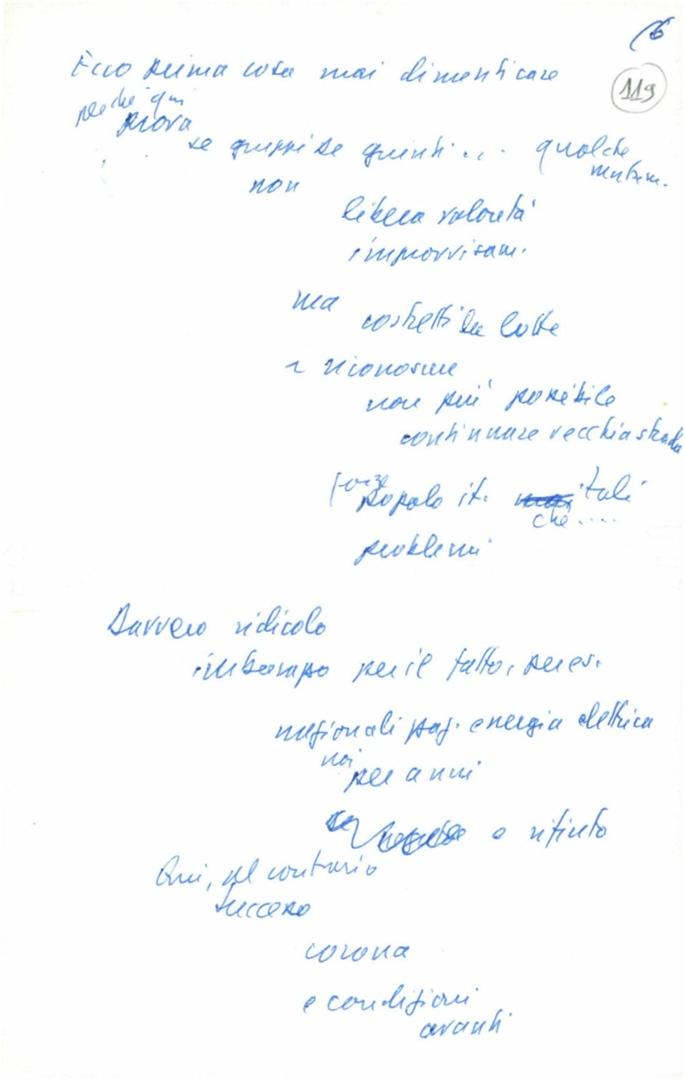 6
119
Ecco prima cosa mai dimenticare
perché qui
prova
se gruppi se giunti... qualche
mutam.
non
libera volontà
improvvisam.
ma
costretti da lotte
a riconoscere
non più possibile
continuare vecchia strada
forze
popolo it. tali
che....
problemi
Davvero ridicolo
imbarazzo per il fatto, per es.
nazionali pag. energia elettrica
noi
per anni
e rifiuto
Qui, al contrario
successo
corona
e condizioni
avanti